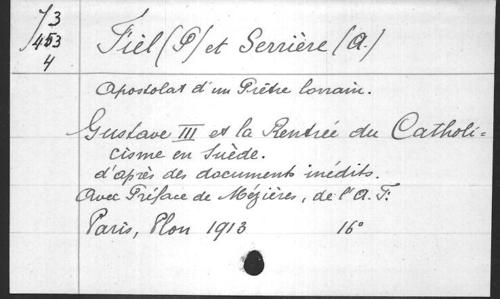 J 3
453
4
Fiel (P) et Serrière (A.)
Apostolat d'un Prêtre lorrain.
Gustave III et la Rentrée du Catholi=
cisme en Suède.
d'après des documents inédits.
Avec Préface de Mézières, de l'A. F.
Paris, Plon 1913 16°